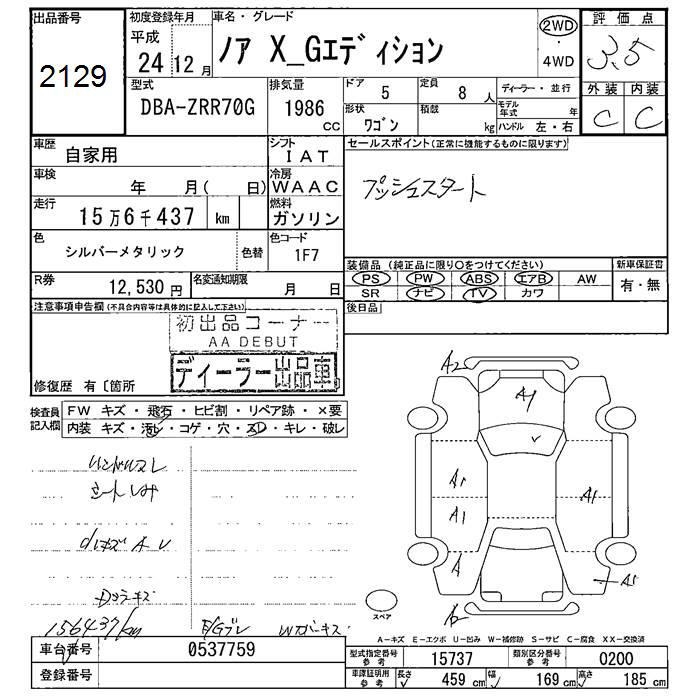 出品番号 初度登録年月 車名・グレード 2WD 評価点
2129 平成 24 12月 ノア X_Gエディション ・ 3.5
4WD
型式 排気量 ドア 定員 ディーラー・並行 外装 内装
DBA-ZRR70G 1986 5 8 人 モデル年式 年 C C
cc 形状 ワゴン 積載 kg ハンドル 左・右
車歴 自家用 シフト IAT セールスポイント(正常に機能するものに限ります)
車検 年 月( 日) 冷房 WAAC プッシュスタート
走行 15万6千437 km 燃料 ガソリン
色 シルバーメタリック 色替 色コード 1F7
装備品(純正品に限り○をつけてください) 新車保証書
R券 12,530円 名変通知期限 月 日 PS PW ABS エアB AW 有・無
SR ナビ TV カワ
注意事項申告欄(不具合内容等は具体的に記入して下さい) 後日品
初出品コーナー
AA DEBUT
ディーラー出品車
修復歴 有〔箇所
検査員記入欄 FW キズ・飛石・ヒビ割・リペア跡・×要
内装 キズ・汚レ・コゲ・穴・スレ・キレ・破レ
A2
A1
ハンドルスレ
A1 A1
A1
A
156437km
スペア
A-キズ E-エクボ U-凹み W-補修跡 S-サビ C-腐食 XX-交換済
車台番号 0537759 型式指定番号 参考 15737 類別区分番号 参考 0200
登録番号 車庫証明用 参考 長さ 459 cm 幅 169 cm 高さ 185 cm